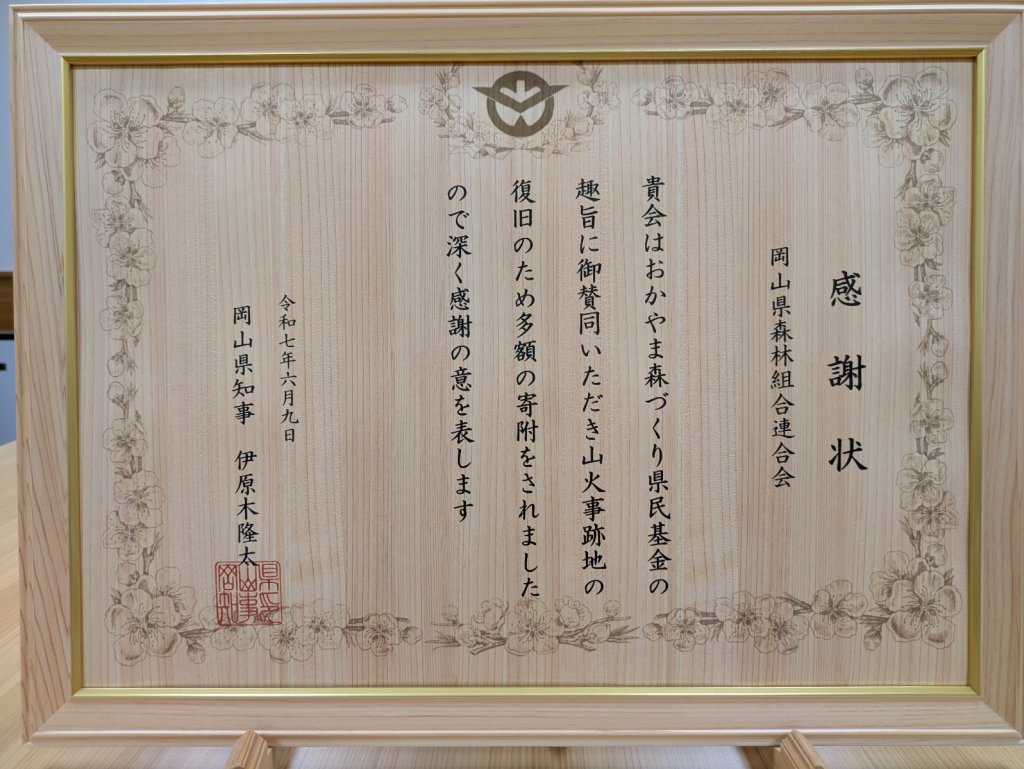 感謝状
岡山県森林組合連合会
貴会はおかやま森づくり県民基金の
趣旨に御賛同いただき山火事跡地の
復旧のため多額の寄附をされました
ので深く感謝の意を表します
令和七年六月九日
岡山県知事 伊原木隆太